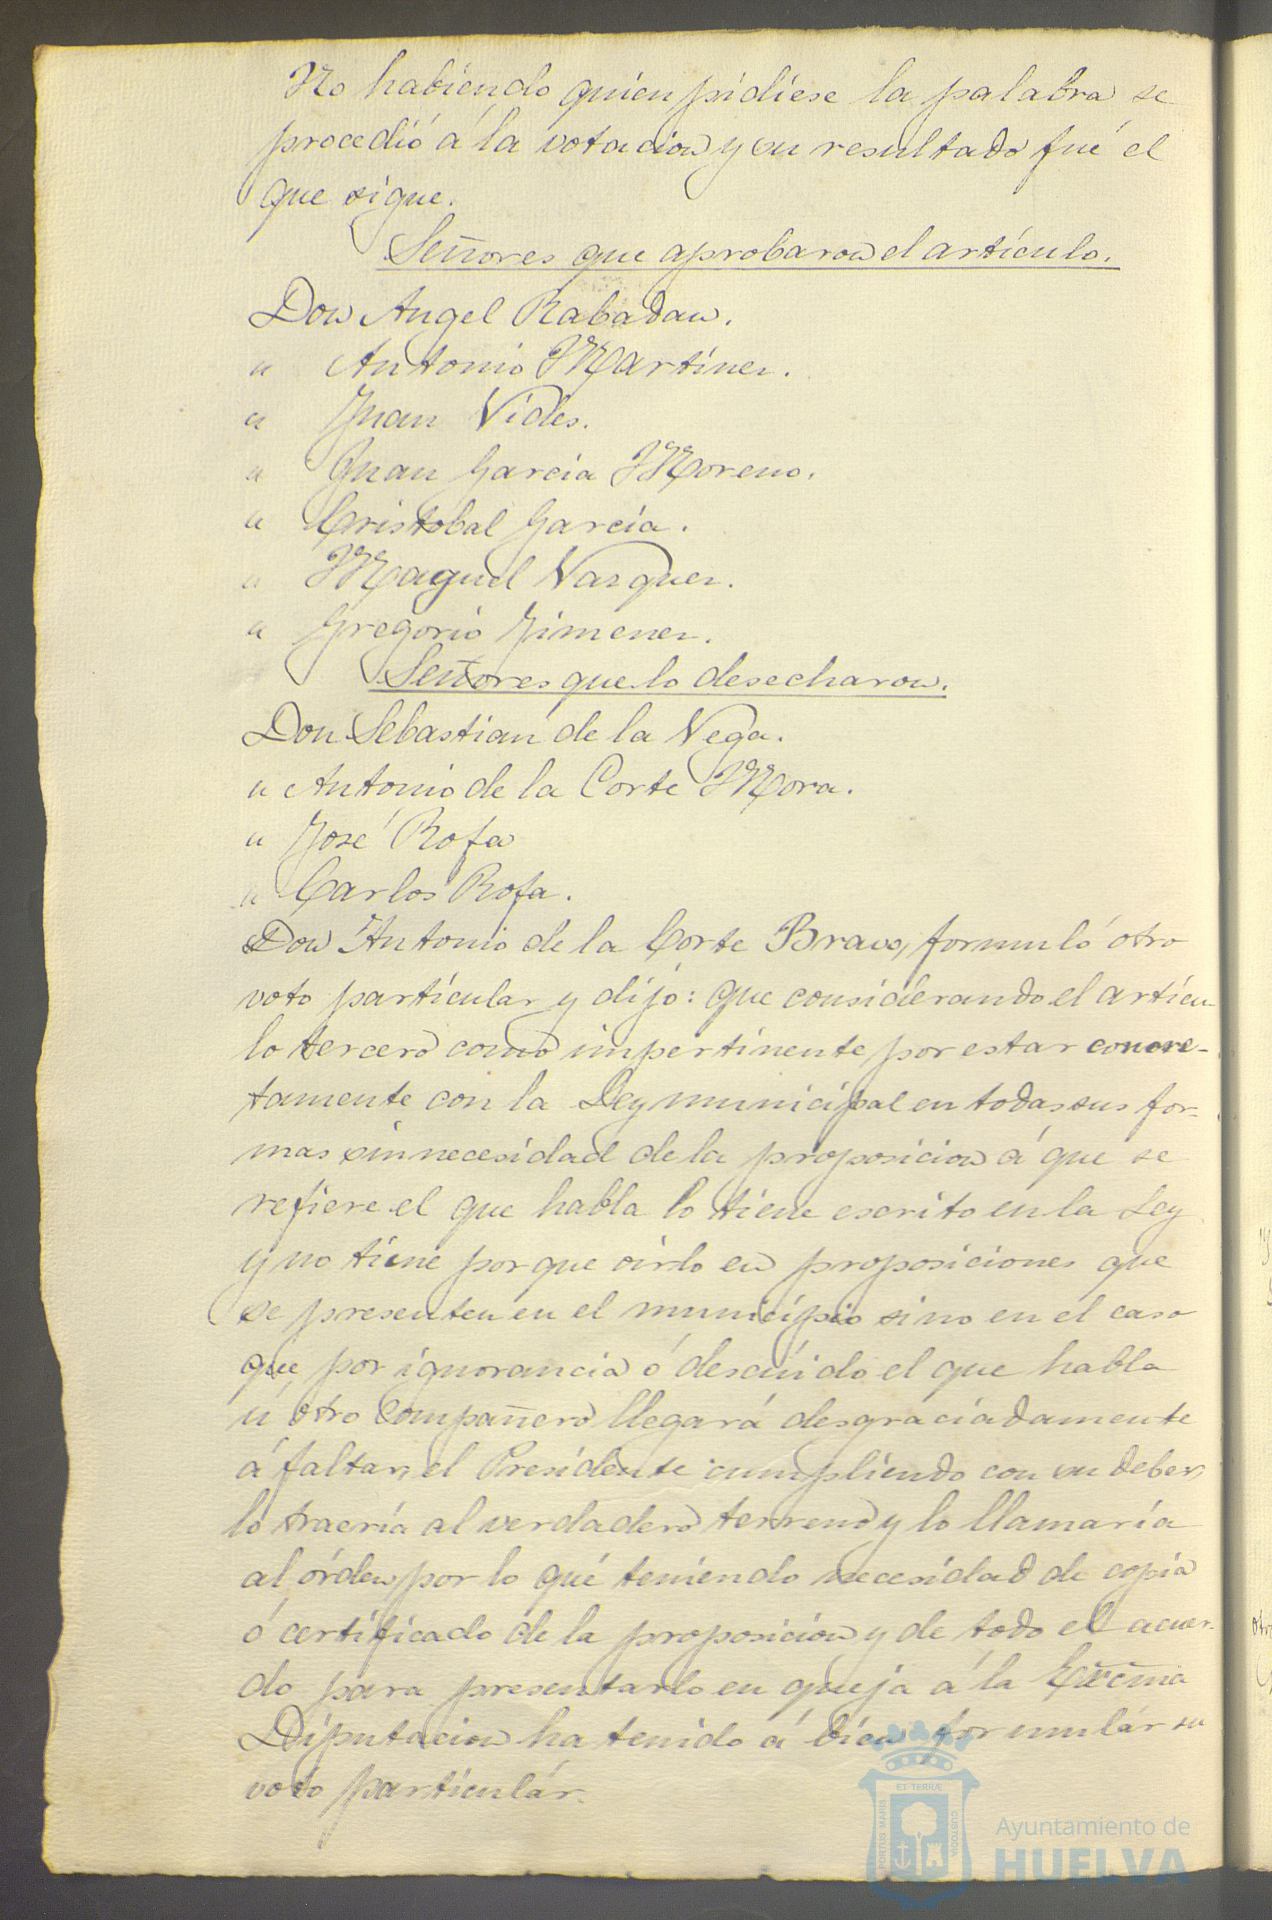 No habiendo quien pidiese la palabra se
procedió á la votacion y su resultado fué el
que sigue.
Señores que aprobaron el artículo.
Don Angel Rabadan.
" Antonio Martinez.
" Juan Vides.
" Juan Garcia Moreno.
" Cristobal Garcia.
" Maguel Vazquez.
" Gregorio Jimenez.
Señores que lo desecharon.
Don Sebastian de la Vega.
" Antonio de la Corte Mora.
" José Rofa
" Carlos Rofa.
Don Antonio de la Corte Bravo, formuló otro
voto particular y dijo: que considerando el artícu-
lo tercero como impertinente por estar concre-
tamente con la Ley municipal en todas sus for-
mas sin necesidad de la proposicion á que se
refiere el que habla lo tiene escrito en la Ley
y no tiene por que oirlo en proposiciones que
se presenten en el municipio sino en el caso
que, por ignorancia ó descúido el que habla
ú otro compañero llegará desgraciadamente
á faltar, el Presidente cumpliendo con su deber,
lo traería al verdadero terreno y lo llamaría
al órden, por lo qué teniendo necesidad de copia
ó certificado de la proposicion y de todo el acuer-
do para presentarlo en queja á la Excma
Diputacion ha tenido á bien formulár su
voto particulár.
ET TERRÆ
PORTUS MARIS
CUSTODIA
Ayuntamiento de
HUELVA